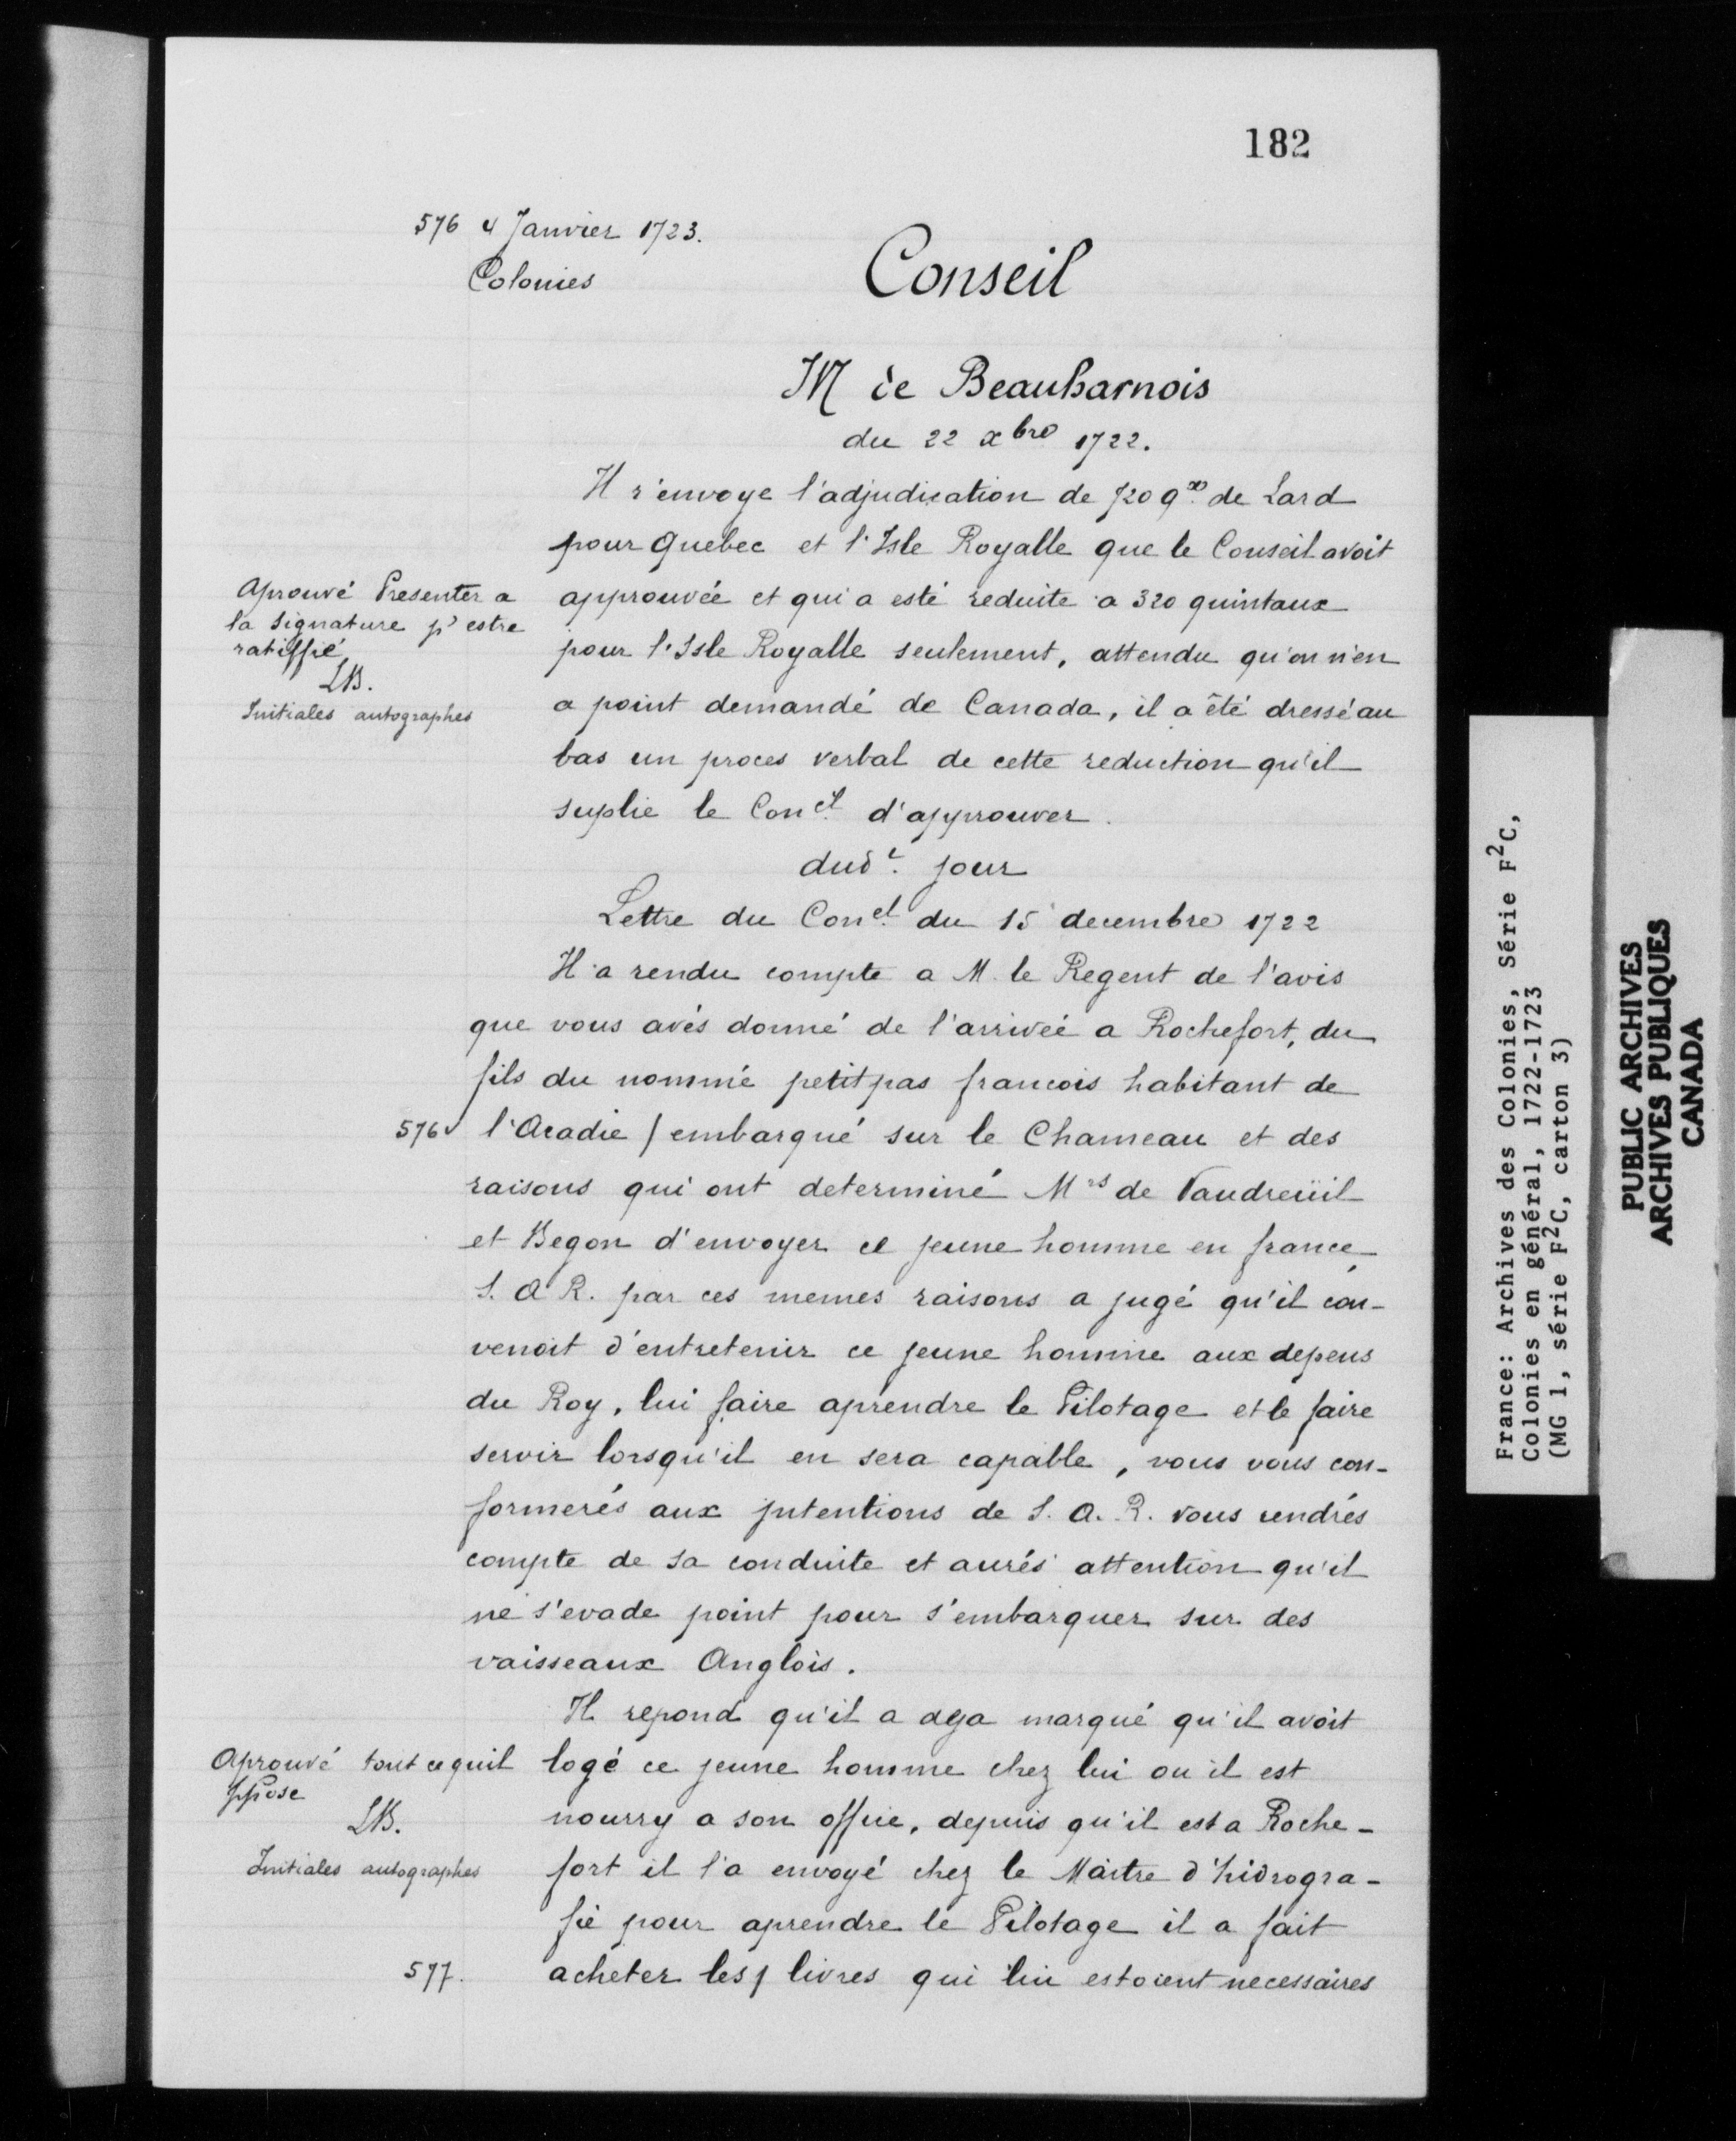 182
576 4 Janvier 1723.
Colonies
Conseil
M de Beauharnois
du 22 xbre 1722.
Il r'envoye l'adjudication de 720 qx de Lard
pour Quebec et l'Isle Royalle que le Conseil avoit
approuvée et qui a esté reduite a 320 quintaux
pour l'Isle Royalle seulement, attendu qu'on n'en
a point demandé de Canada, il a été dressé au
bas un proces verbal de cette reduction qu'il
suplie le Concl d'approuver.
Aprouvé Presenter a
la signature pr estre
ratiffié
LB.
Initiales autographes
dudt jour
Lettre du Concl du 15 decembre 1722
Il a rendu compte a M. le Regent de l'avis
que vous avés donné de l'arrivée a Rochefort, du
fils du nommé petitpas francois habitant de
576v l'Acadie / embarqué sur le Chameau et des
raisons qui ont determiné Mrs de Vaudreüil
et Begon d'envoyer ce jeune homme en france,
S. A R. par ces memes raisons a jugé qu'il con-
venoit d'entretenir ce jeune homme aux depens
du Roy, lui faire aprendre le Pilotage et le faire
servir lorsqu'il en sera capable, vous vous con-
formerés aux jntentions de S. A. R. vous rendrés
compte de sa conduite et aurés attention qu'il
ne s'evade point pour s'embarquer sur des
vaisseaux Anglois.
Il repond qu'il a deja marqué qu'il avoit
logé ce jeune homme chez lui ou il est
nourry a son office, depuis qu'il est a Roche-
fort il l'a envoyé chez le Maitre d'hidrogra-
fie pour aprendre le Pilotage il a fait
577. acheter les / livres qui lui estoient necessaires
Aprouvé tout ce quil
ppose
LB.
Initiales autographes
France: Archives des Colonies, Série F2C,
Colonies en général, 1722-1723
(MG 1, série F2C, carton 3)
PUBLIC ARCHIVES
ARCHIVES PUBLIQUES
CANADA